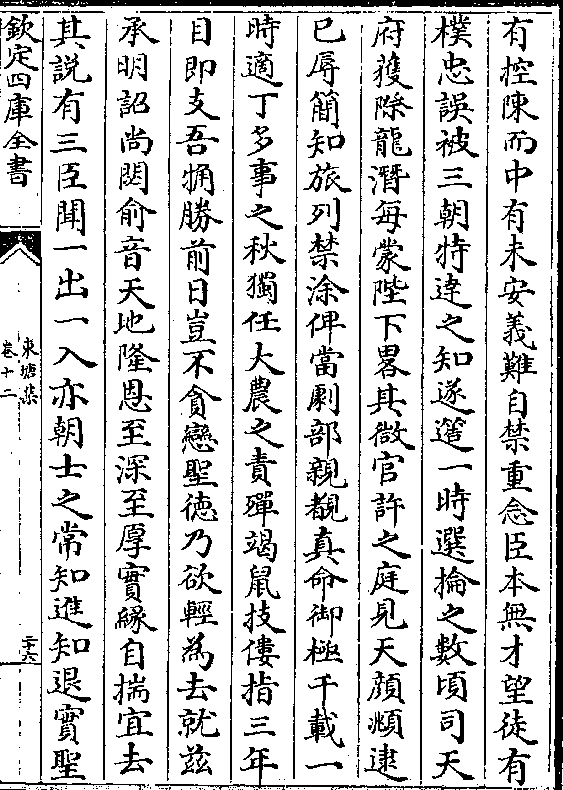 有控陳而中有未安義難自禁重念臣本無才望徒有
樸忠誤被三朝特達之知遂簉一時選掄之數頃司天
府獲際龍潛每蒙陛下畧其微官許之庭見天顔頫逮
已辱簡知旅列禁涂俾當劇部親覩真命御極千載一
時適丁多事之秋獨任大農之責殫竭鼠技僂指三年
目即支吾捔勝前日豈不貪戀聖徳乃欲輕為去就兹
承明詔尚閟俞音天地隆恩至深至厚實緣自揣宜去
其説有三臣聞一出一入亦朝士之常知進知退實聖
欽定四庫全書
東塘集
卷十二
二十六